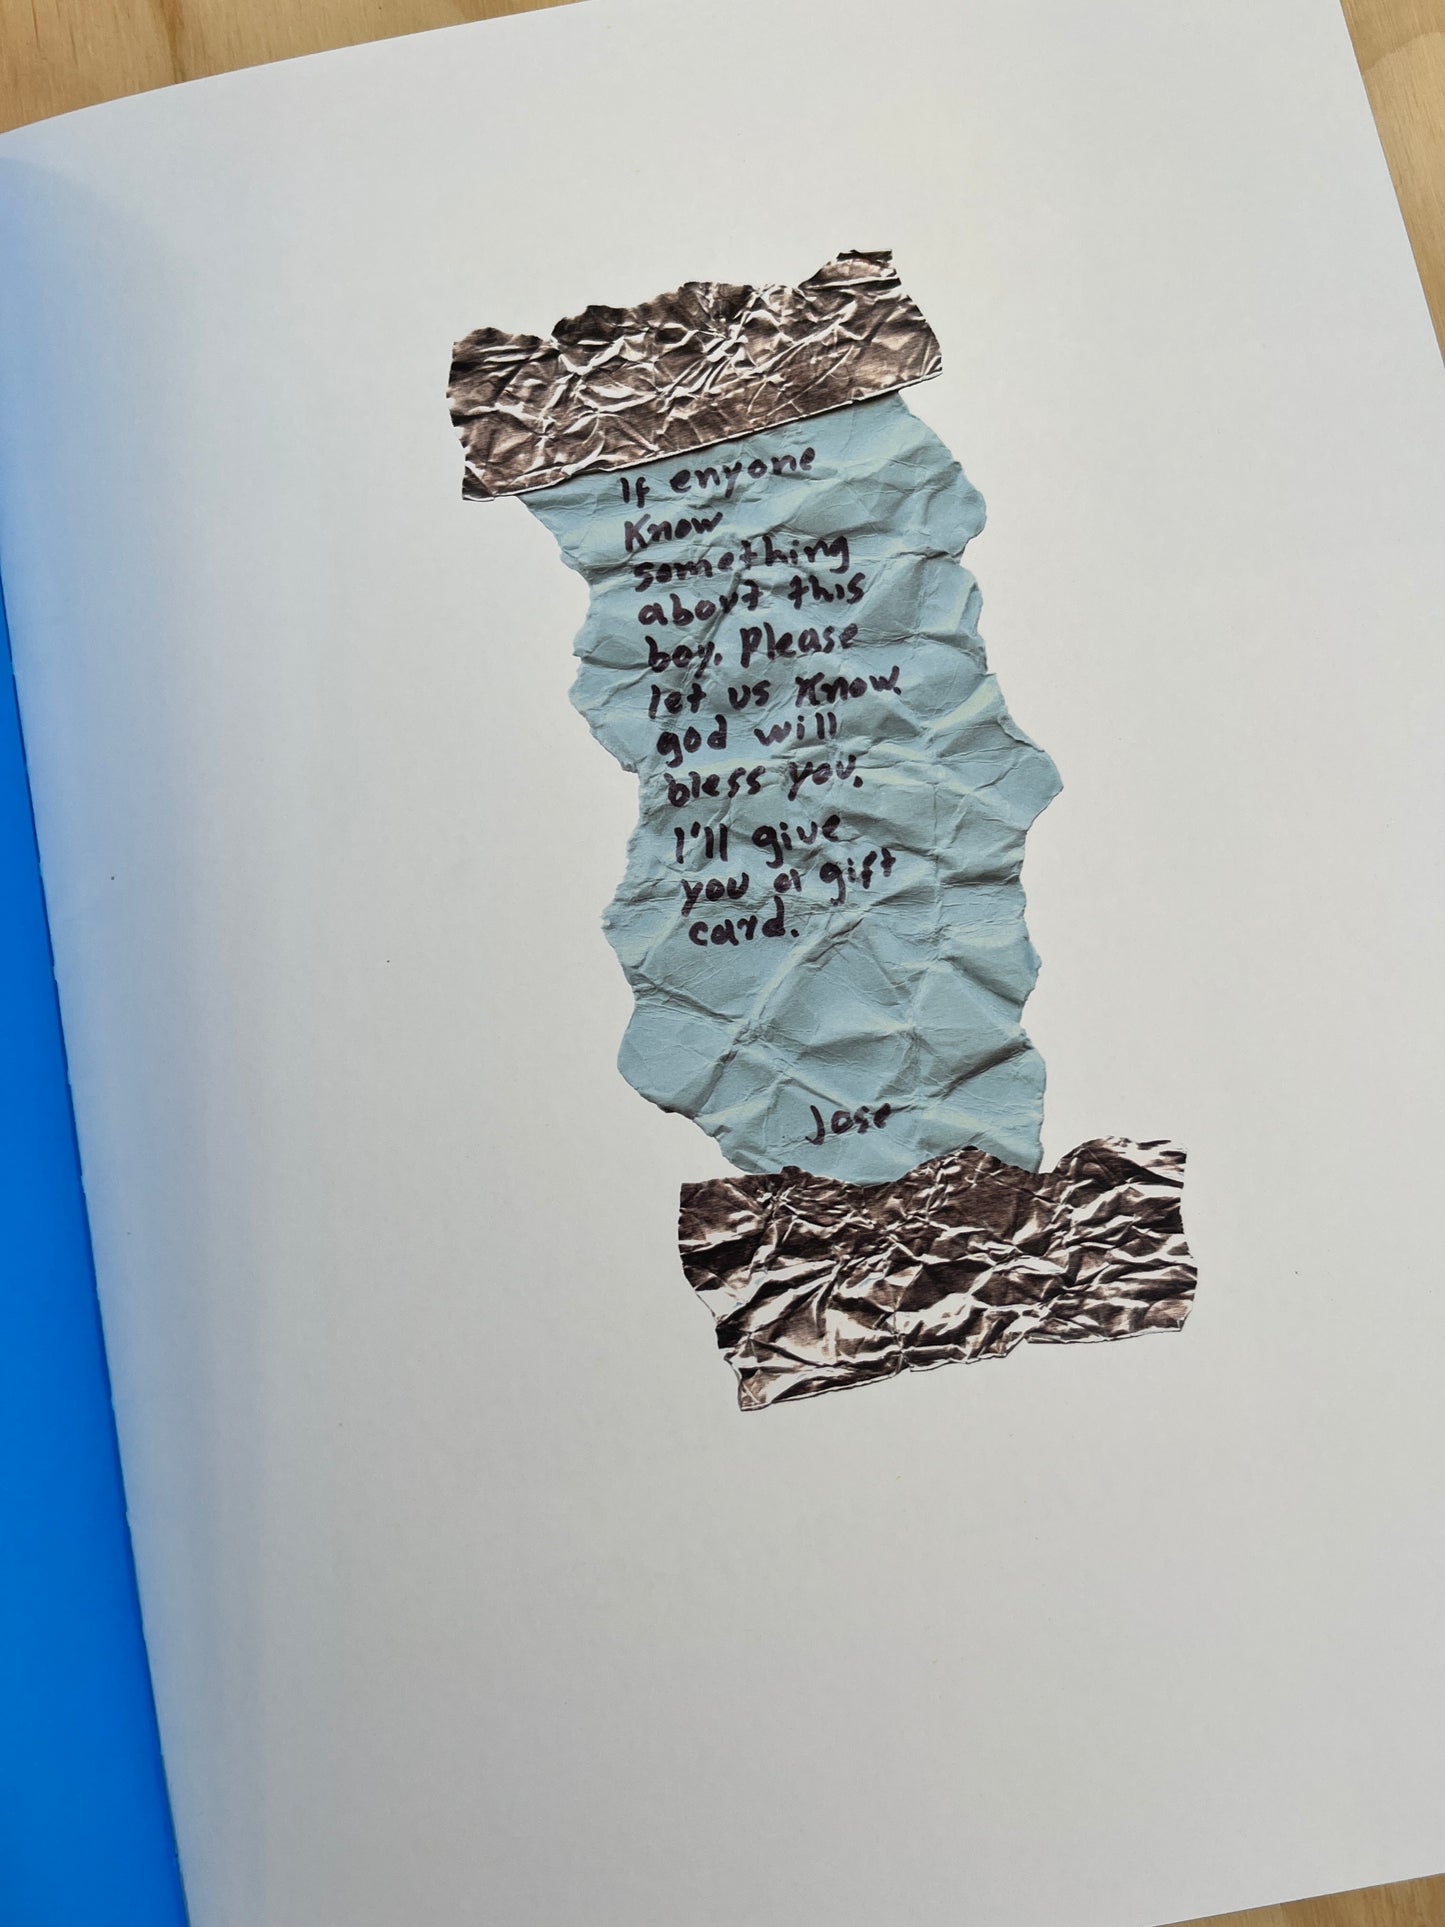 If enyone
Know
something
about this
boy. Please
let us Know.
god will
bless you.
I'll give
you a gift
card.
Jose